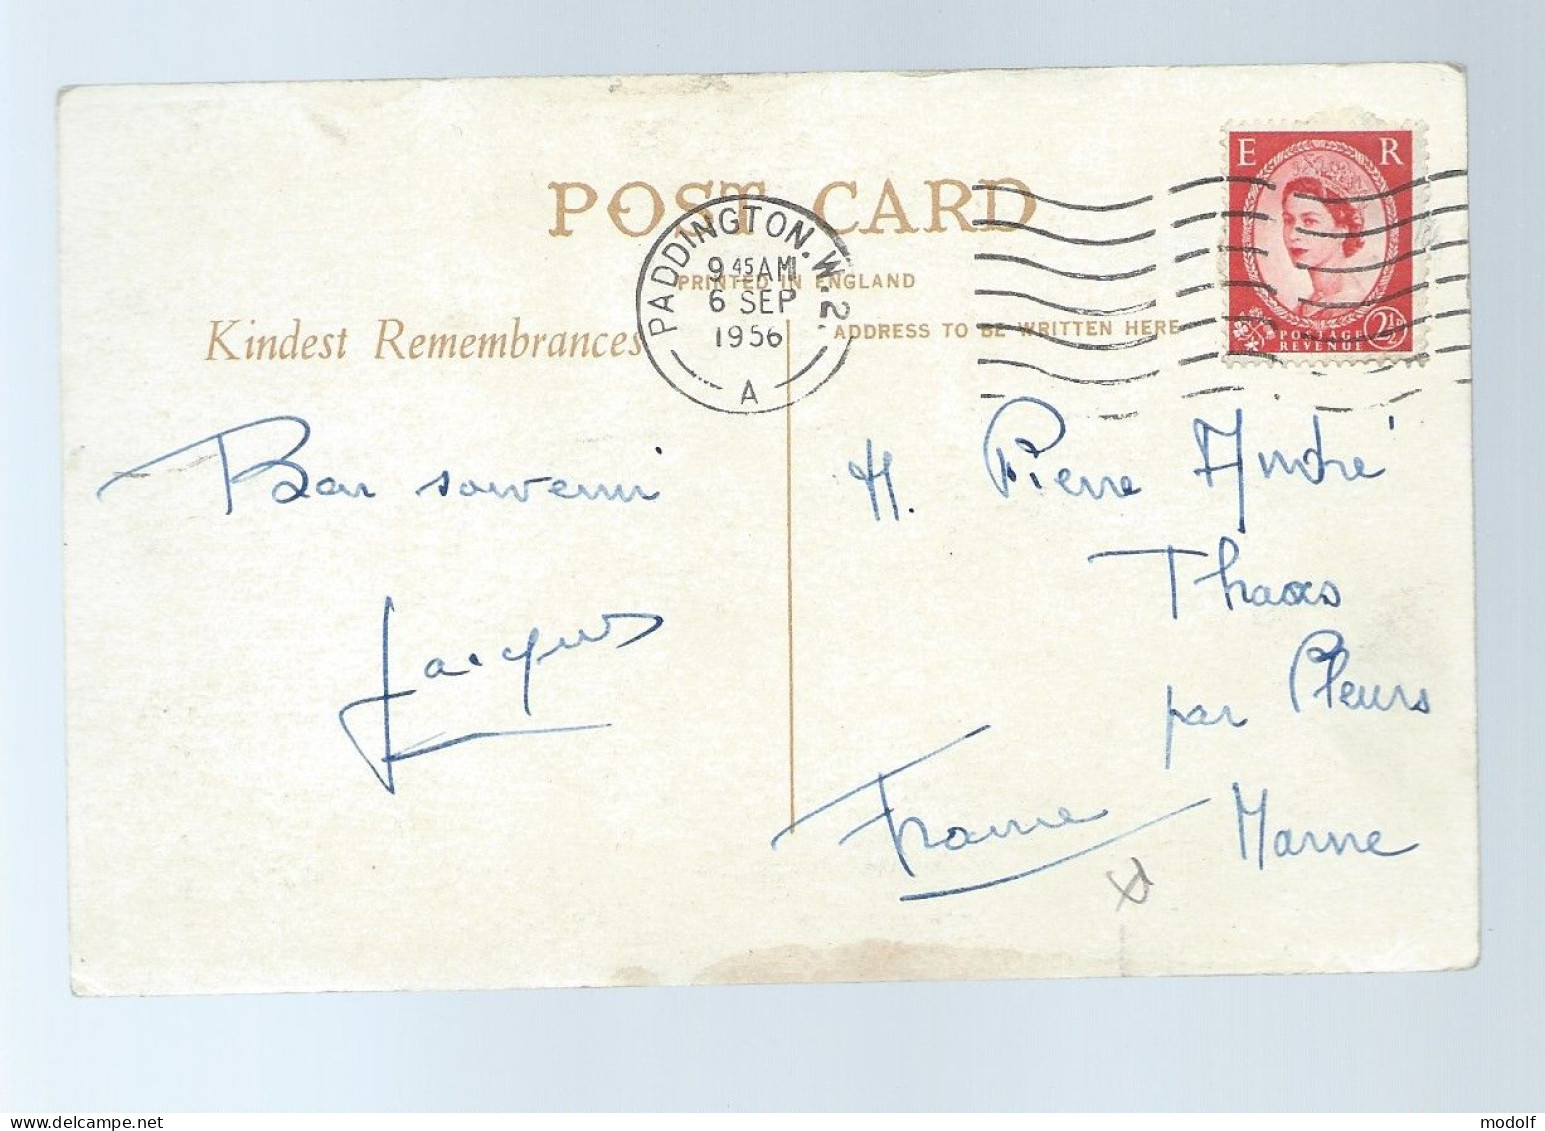 POST CARD
PRINTED IN ENGLAND
PADDINGTON. W. 2.
9 45 AM
6 SEP
1956
A
E R
POSTAGE
REVENUE
2½D
Kindest Remembrances
ADDRESS TO BE WRITTEN HERE
Bon souvenir
Jacques
M. Pierre André
Thaas
par Pleurs
Marne
France
delcampe.net
modolf